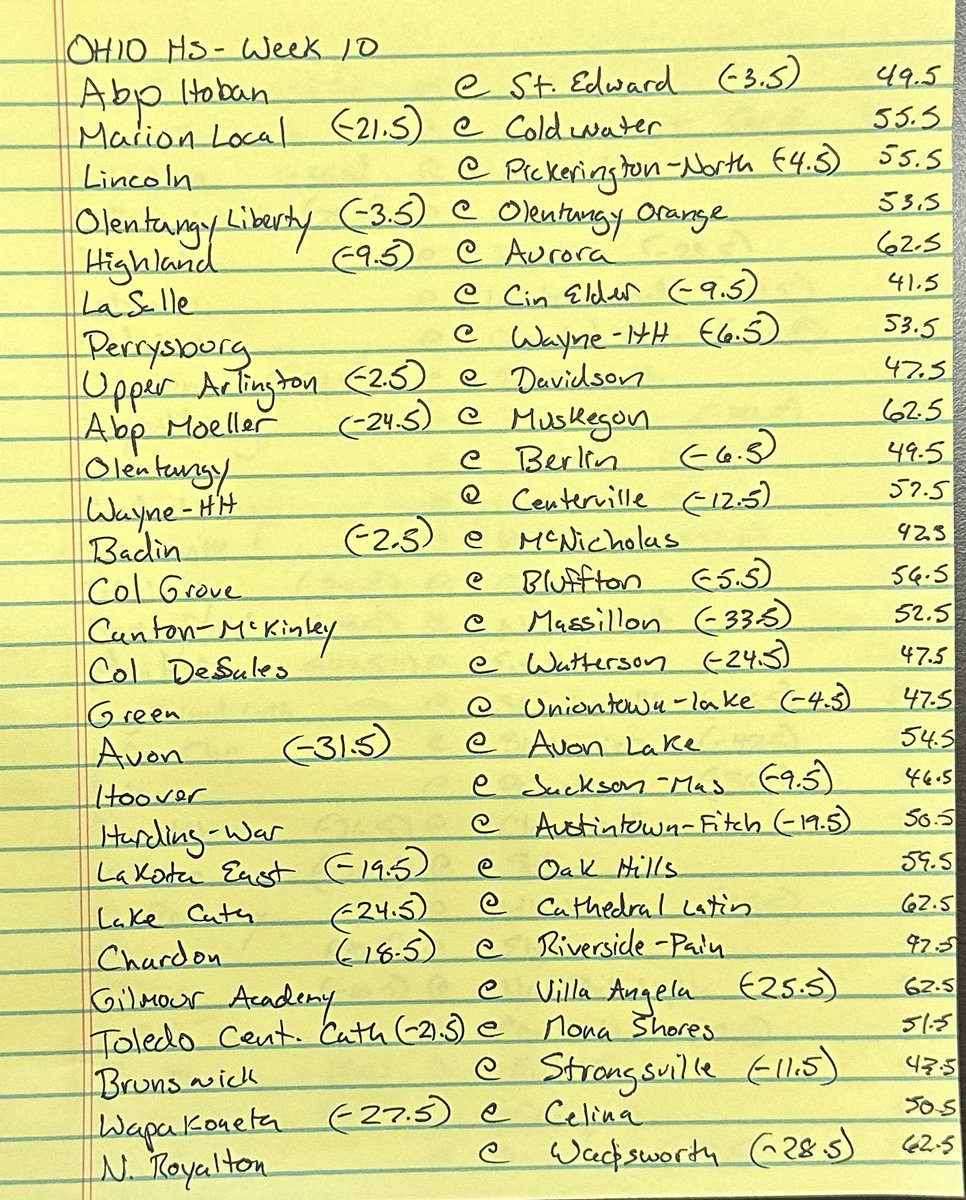 OHIO HS - Week 10
Abp Hoban @ St. Edward (-3.5) 49.5
Marion Local (-21.5) @ Coldwater 55.5
Lincoln @ Pickerington-North (-4.5) 55.5
Olentangy Liberty (-3.5) @ Olentangy Orange 53.5
Highland (-9.5) @ Aurora 62.5
LaSalle @ Cin Elder (-9.5) 41.5
Perrysburg @ Wayne-HH (-6.5) 53.5
Upper Arlington (-2.5) @ Davidson 47.5
Abp Moeller (-24.5) @ Muskegon 62.5
Olentangy @ Berlin (-6.5) 49.5
Wayne-HH @ Centerville (-12.5) 57.5
Badin (-2.5) @ McNicholas 42.5
Col Grove @ Bluffton (-5.5) 56.5
Canton-McKinley @ Massillon (-33.5) 52.5
Col DeSales @ Watterson (-24.5) 47.5
Green @ Uniontown-lake (-4.5) 47.5
Avon (-31.5) @ Avon Lake 54.5
Hoover @ Jackson-Mas (-9.5) 46.5
Harding-War @ Austintown-Fitch (-19.5) 50.5
Lakota East (-19.5) @ Oak Hills 59.5
Lake Cath (-24.5) @ Cathedral Latin 62.5
Chardon (-18.5) @ Riverside-Pain 47.5
Gilmour Academy @ Villa Angela (-25.5) 62.5
Toledo Cent. Cath (-21.5) @ Mona Shores 51.5
Brunswick @ Strongsville (-11.5) 43.5
Wapakoneta (-27.5) @ Celina 50.5
N. Royalton @ Wadsworth (-28.5) 62.5